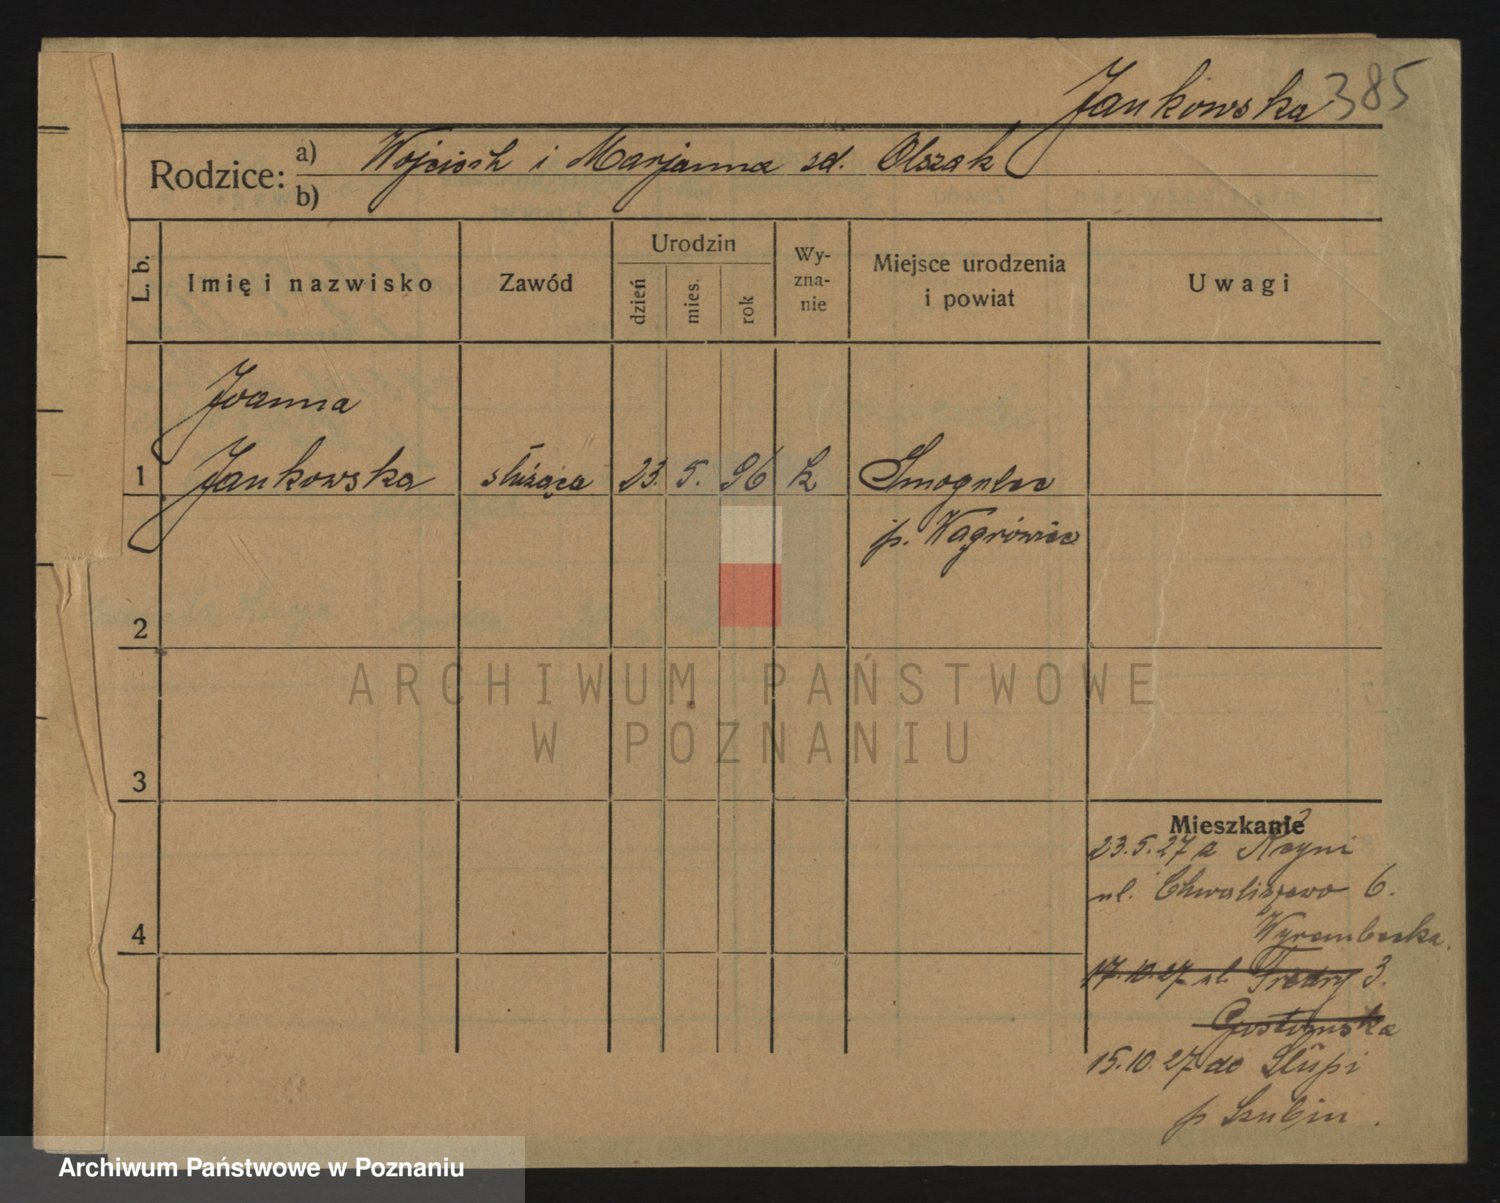 Jankowska 385
Rodzice: a) Wojciech i Marjanna zd. Olszak
b)
L. b.
Imię i nazwisko
Zawód
Urodzin
dzień
mies.
rok
Wy-
zna-
nie
Miejsce urodzenia
i powiat
Uwagi
Joanna
1 Jankowska służąca 23. 5. 96 k Smogulec
p. Wągrówiec
2
ARCHIWUM PAŃSTWOWE
W POZNANIU
3
4
Mieszkanie
23.5.27 z Kcyni
ul. Chwaliszewo 6.
Wyrembecka.
17.10.27 ul. Fredry 3.
Gostomska
15.10.27 do Słupi
p Szubin.
Archiwum Państwowe w Poznaniu